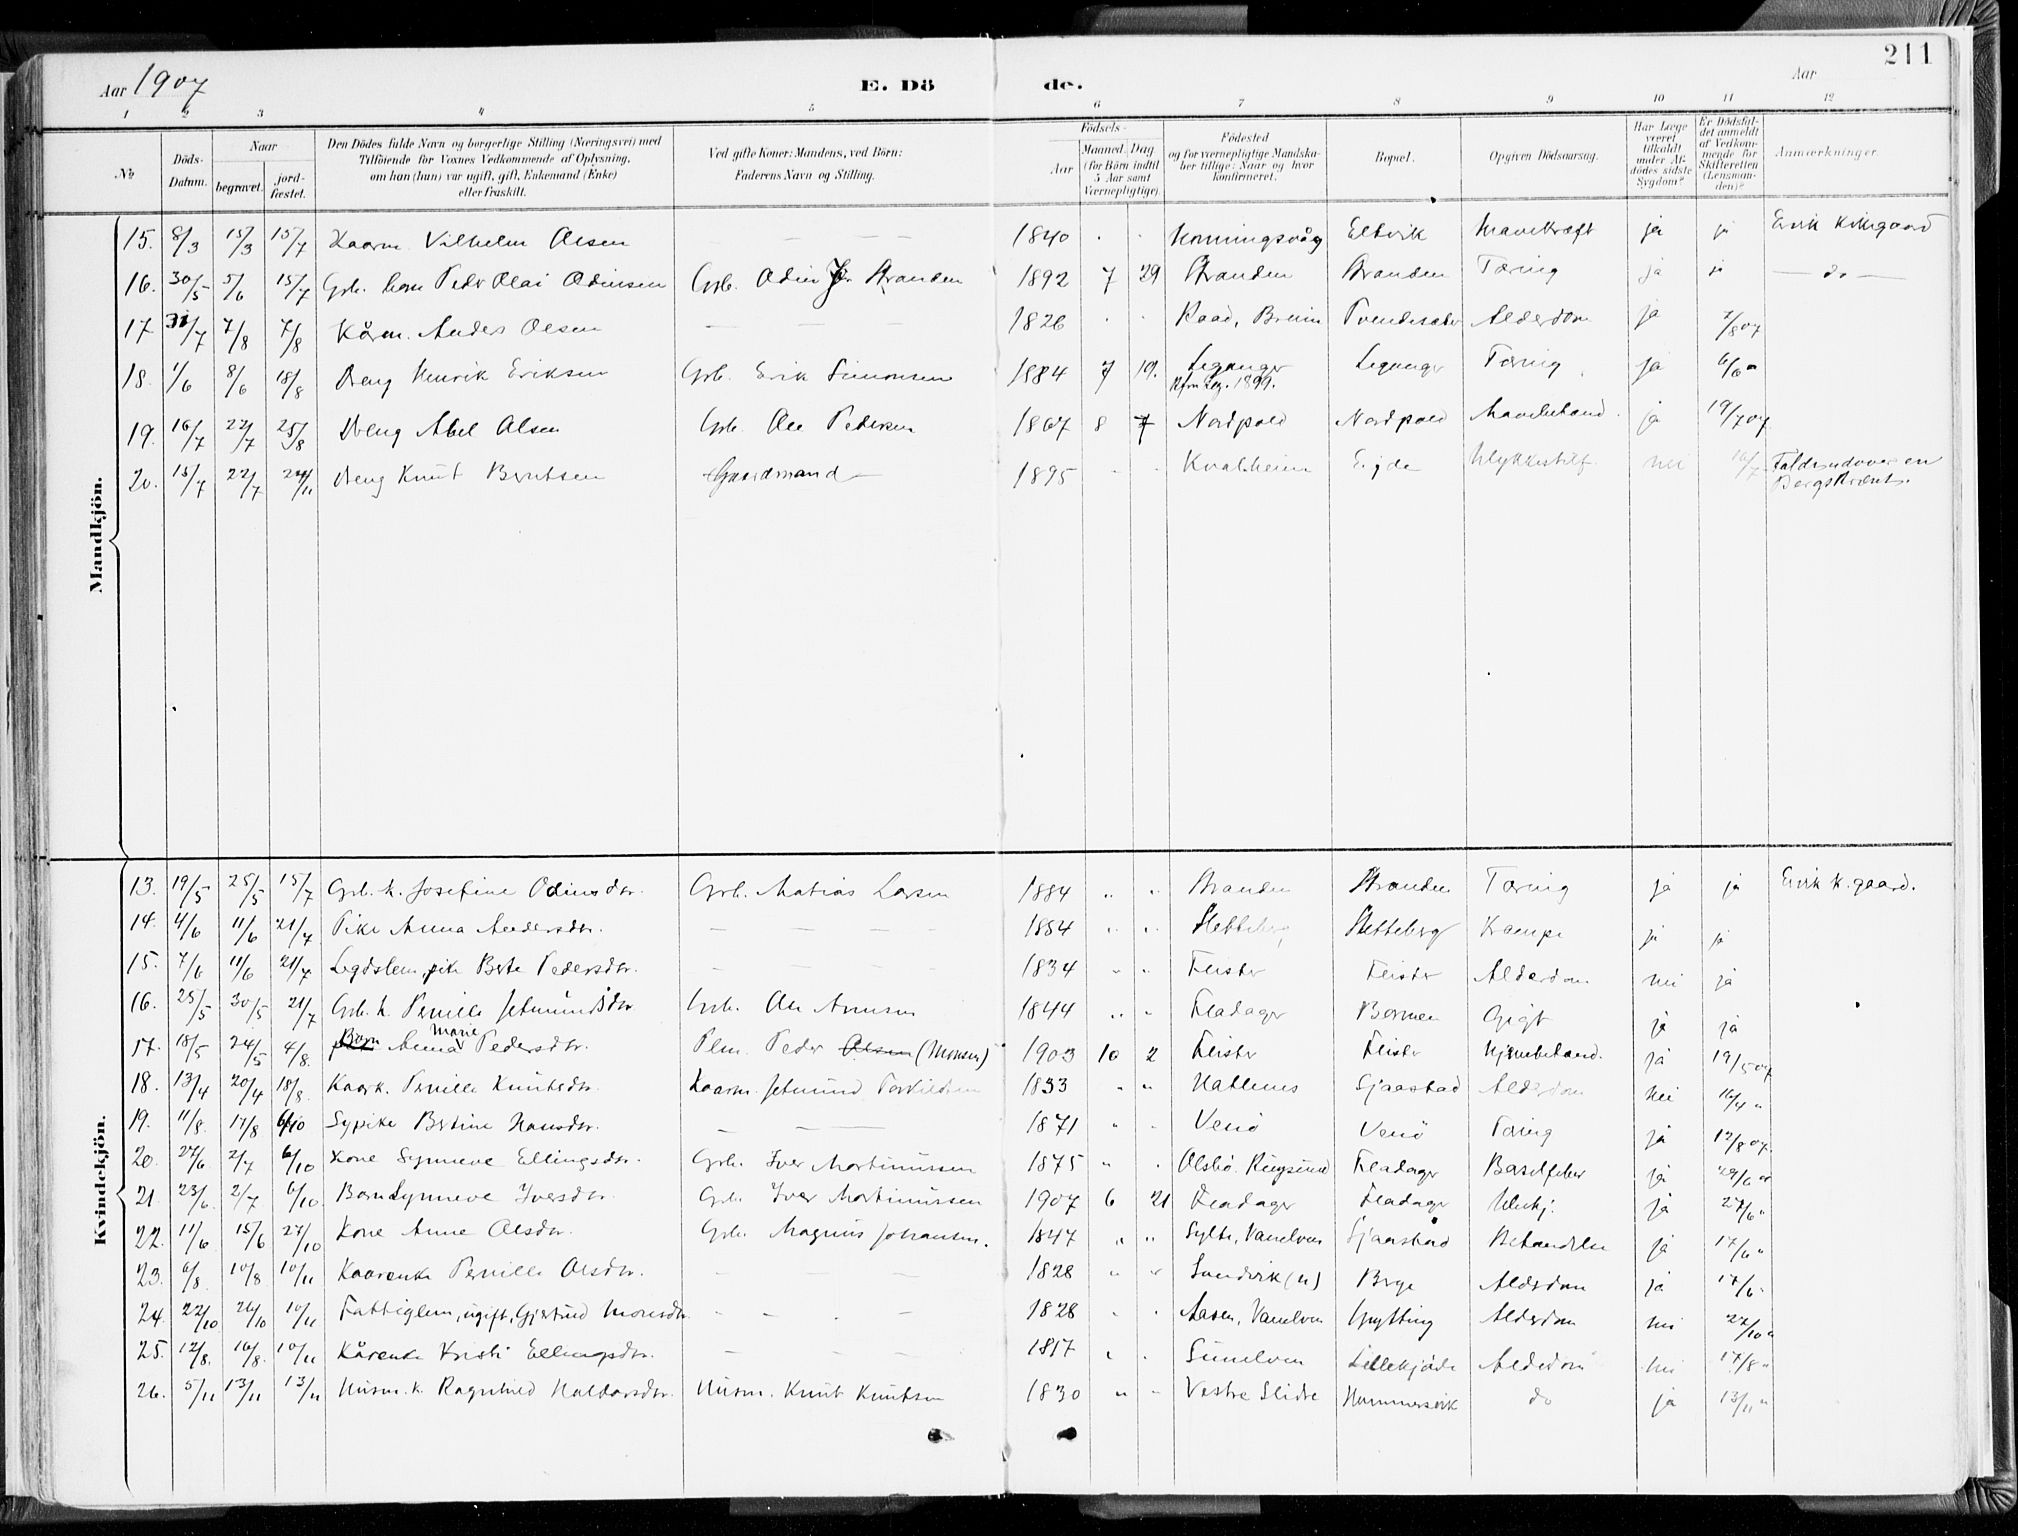 211
Aar 1907
E. Dö de.
Aar
1 2 3 4 5 6 7 8 9 10 11 12
№
Döds-Datum.
Naar
begravet.
jord-fæstet.
Den Dödes fulde Navn og borgerlige Stilling (Næringsvei) med
Tilföiende for Voxnes Vedkommende af Oplysning,
om han (hun) var ugift, gift, Enkemand (Enke)
eller fraskilt.
Ved gifte Koner: Mandens, ved Börn:
Faderens Navn og Stilling.
Födsels-
Aar
Maaned. Dag
(for Börn indtil
5 Aar samt
Værnepligtige).
Födested
og for værnepligtige Mandska-
ber tillige: Naar og hvor
konfirmeret.
Bopæl.
Opgiven Dödsaarsag.
Har Læge
været
tilkaldt
under Af-
dödes sidste
Sygdom?
Er Dödsfal-
det anmeldt
af Vedkom-
mende for
Skifteretten
(Lensman-
den)?
Anmærkninger.
Mandkjön.
15. 8/3 15/3 15/7 Kaarm. Vilhelm Olsen — — — 1840 Honningsvåg Eltvik Mavekræft ja ja Erik Kirkgaard
16. 30/5 5/6 15/7 Grb. Peder Olai Odinsen Grb. Odin Stranden 1892 7 29 Stranden Stranden Tæring ja ja — do —
17. 31/7 7/8 7/8 Kårm. Anders Olsen — — — 1826 Raad, Breim Alderdom ja 7/8 07
18. 1/6 8/6 18/8 Dreng Henrik Eriksen Grb. Erik Simonsen 1884 7 19. Leganger Leganger Tæring ja 6/6 "
1899.
19. 16/7 22/7 25/8 Dreng Abel Olsen Grb. Ole Pedersen 1867 8 7 Nordpold Nordpold ja 19/7 07
20. 15/7 22/7 24/11 Dreng Knut Berntsen Gaardmand 1895 Kvalheim Eigde Ulykkestilf. nei 16/7 Faldt udover en
Bergskrænt.
Kvindekjön.
13. 19/5 25/5 15/7 Grb. k. Josefine Odinsdtr. Grb. Matias Larsen 1884 " " Stranden Stranden Tæring ja ja Erik K.gaard.
14. 4/6 11/6 21/7 Pike Anna Andersdtr. — — — — 1854 " " Sletteberg Sletteberg Krampe ja ja
15. 7/6 11/6 21/7 Legdslem, pike Berte Pedersdtr. — — — — 1834 " " Leister Leister Alderdom nei ja
16. 25/5 30/5 21/7 Grb. k. Pernille Jetmundsdtr. Grb. Ole Amnsen 1844 " " Fladager Bormen Gigt ja ja
17. 18/5 24/5 4/8. Barn Anna Marie Pedersdtr. Plm. Peder Olsen (Monsen) 1903 10 2 Leister Leister Hjernebetænd. ja 19/5 07
18. 13/4 20/4 18/8. Kaark. Pernille Knutsdtr. Kaarm. Jetmund 1833 " " Hatlenes Sjaastad Alderdom nei 16/4 "
19. 11/8. 17/8 6/10 Sypike Bertine Hansdtr. — — — 1871 " " Venö Venö Tæring ja 12/8 07.
20. 27/6. 2/7 6/10 Kone Synneve Ellingsdtr. Grb. Iver Mortinussen 1875 " " Olsbö. Ringsund Fladager Barselfeber ja 29/6 07
21. 23/6. 2/7 6/10. Barn Synneve Iversdtr. Grb. Iver Mortinussen 1907 6 21 Fladager Fladager Ubekj. ja 27/6 "
22. 11/6 15/6 27/10 Kone Anne Olsdtr. Grb. Magnus Johansen. 1847 " " Sylte, Vanelven Sjaastad ja 17/6 "
23. 6/8 10/8 10/11 Kaarenke Pernille Olsdtr. — — — 1828 " " Sandvik (u) Berge Alderdom ja 17/6.
24. 22/10 26/10 10/11 Fattiglem, ugift, Gjertrud Monsdtr. — — 1828 " " Aasen, Vanelven Grytting Alderdom nei 22/10 "
25. 12/8. 16/8. 10/11 Kårenke Kristi Ellingsdtr. — — — 1817 " " Sunelven Alderdom nei 17/8 "
26. 5/11 13/11 13/11 Husm. k. Ragnhild Haldorsdtr. Husm. Knut Knutsen 1830 " " Vestre Slidre Hammersvik do ja 13/11 "